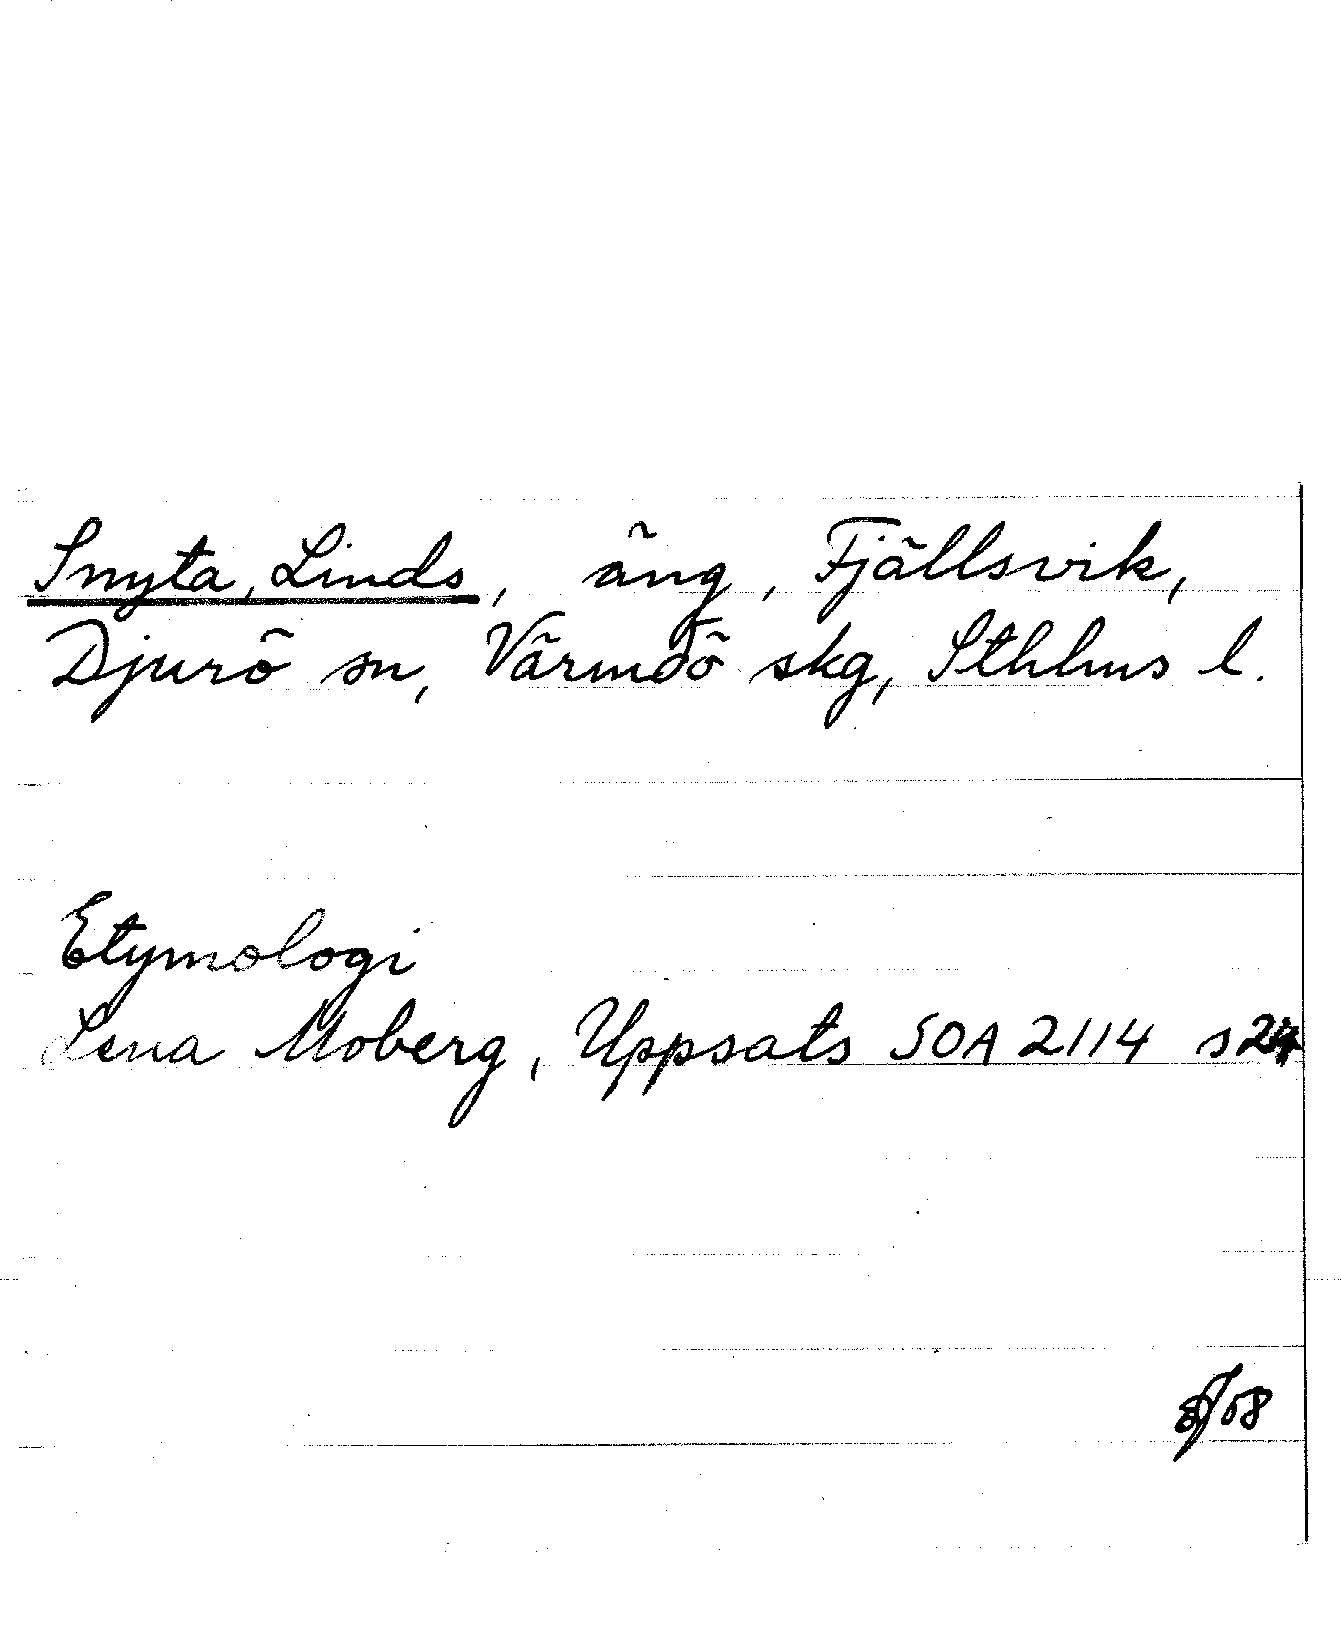 Snyta, Linds, äng, Fjällsvik,
Djurö sn, Värmdö skg, Sthlms l.
Etymologi
Lena Moberg, Uppsats SOA 2114 s